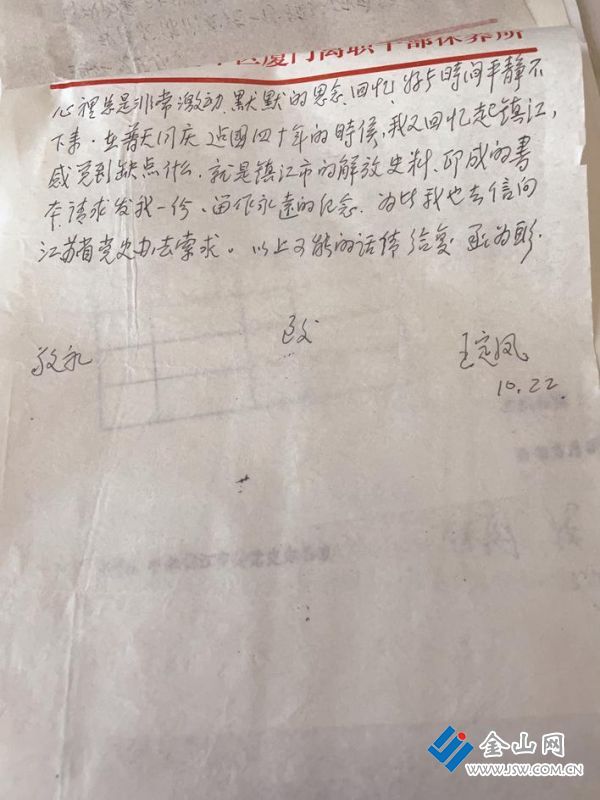 区厦门离职干部休养所
心裡总是非常激动.默默的思念.回忆.好与時间平静不
下来.在普天同庆 迎国四十年的時侯,我又回忆起镇江,
感觉到缺点什么.就是镇江市的解放史料.印成的書
本.请求发我一份.留作永远的纪念.为此我也去信向
江苏省党史办去索求。以上可能的话情给复 函为盼.
致
敬礼
王定凤
10.22
金山网
WWW.JSW.COM.CN